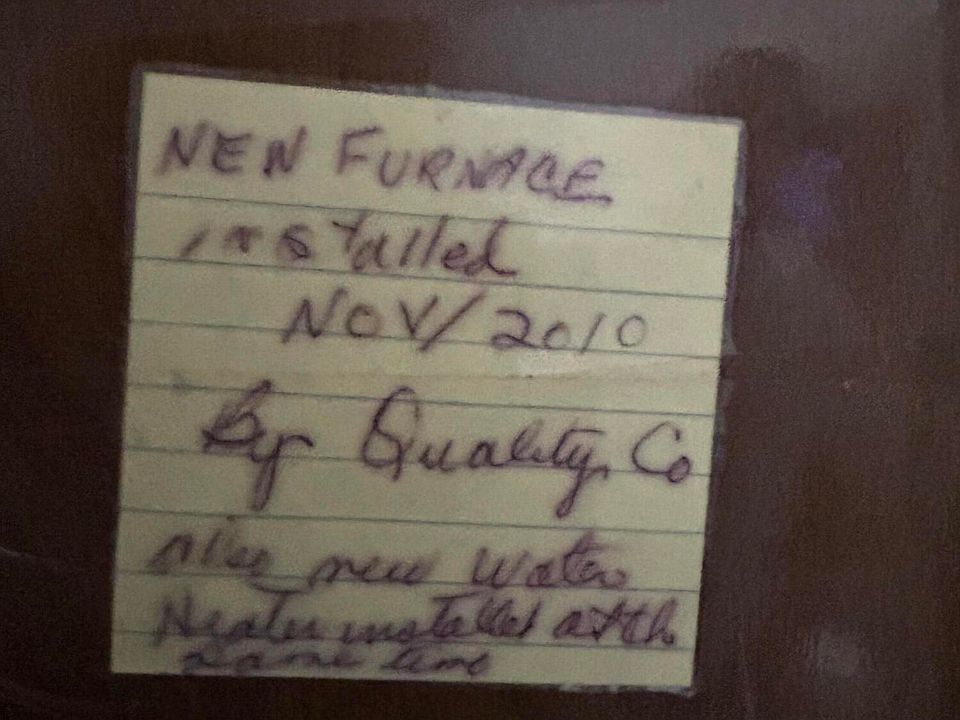 NEW FURNACE
installed
NOV/2010
By Quality Co
also new water
Heater installed at the
same time